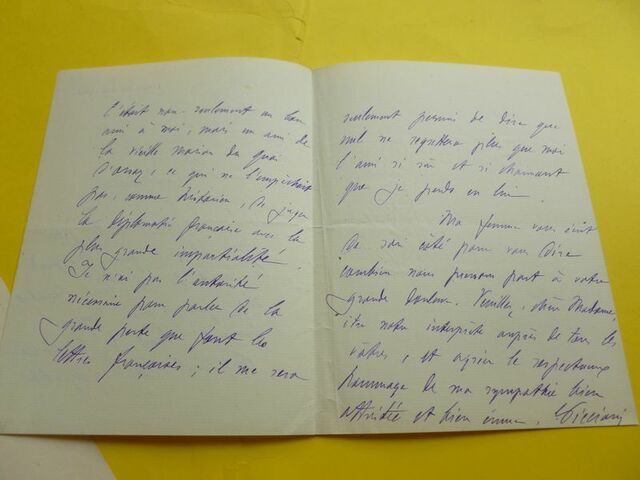 C'était non-seulement un bon
ami à moi, mais un ami de
la vieille maison du quai
d'Orsay, ce qui ne l'empêchait
pas, comme historien, de juger
la diplomatie française avec la
plus grande impartialité.
Je n'ai pas l'autorité
nécessaire pour parler de la
grande perte que font les
lettres françaises ; il me sera
seulement permis de dire que
nul ne regrettera plus que moi
l'ami si sûr et si charmant
que je perds en lui.
Ma femme vous écrit
de son côté pour vous dire
combien nous prenons part à votre
grande douleur. Veuillez, chère Madame,
être notre interprète auprès de tous les
vôtres, et agréer le respectueux
hommage de ma sympathie bien
attristée et bien émue.